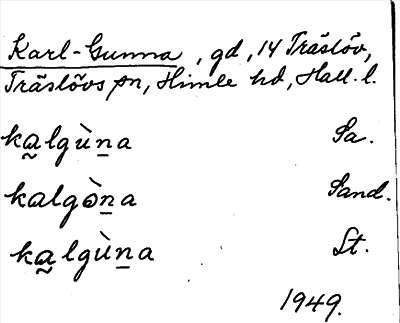 Karl-Gunna, gd, 14 Träslöv,
Träslövs sn, Himle hd, Hall. l.
ka̰lgùn̲a Sa.
kalgò̀n̲a Sand.
ka̰lgùn̲a St.
1949.